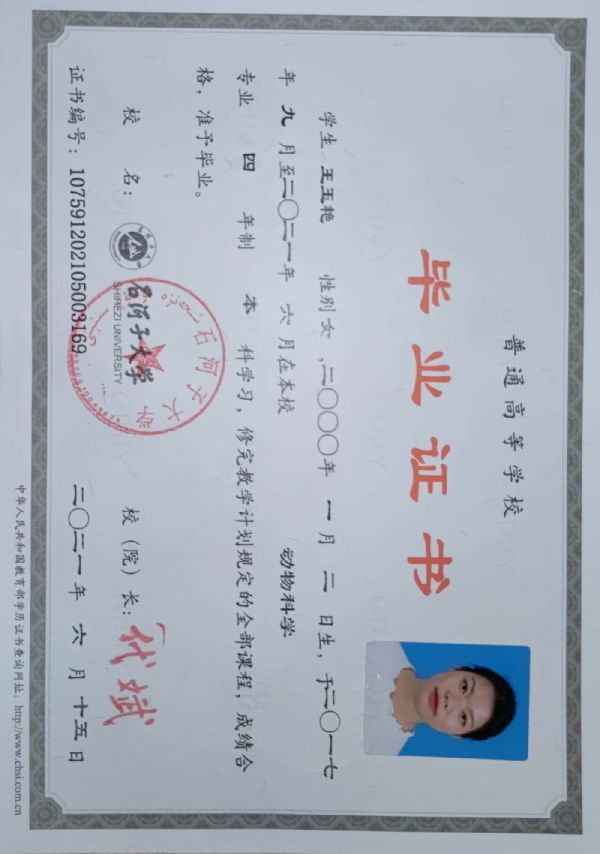 普通高等学校
毕业证书
学生 王玉艳 性别 女，二〇〇〇年 一 月 二 日生，于二〇一七
年 九 月至二〇二一年 六 月在本校 动物科学
专业 四 年制 本 科学习，修完教学计划规定的全部课程，成绩合
格，准予毕业。
校 名： 石河子大学 校（院）长：代斌
SHIHEZI UNIVERSITY
石河子大学
证书编号：107591202105003169 二〇二一年 六 月 十五 日
中华人民共和国教育部学历证书查询网址：http://www.chsi.com.cn